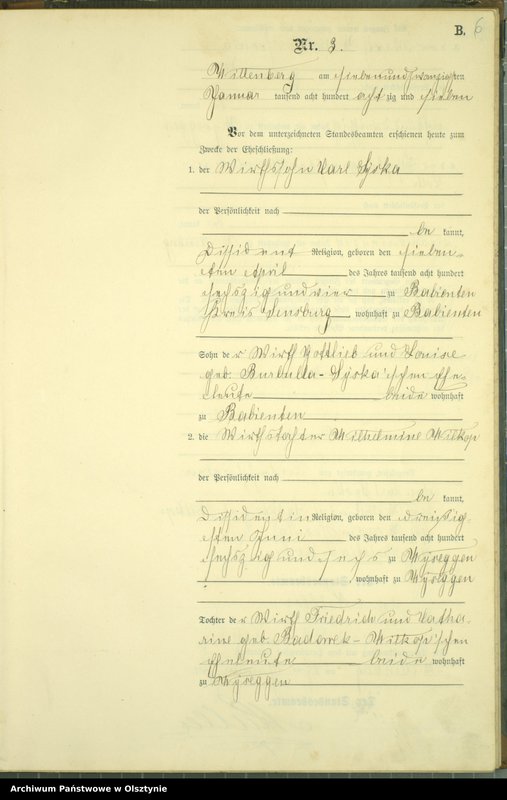 B. 6
Nr. 3.
Wittenberg am siebenundzwanzigsten
Januar tausend acht hundert achtzig und sieben
Vor dem unterzeichneten Standesbeamten erschienen heute zum
Zwecke der Eheschließung:
1. der Wirthssohn Karl Lyska
der Persönlichkeit nach
be kannt,
Dissident Religion, geboren den sieben-
ten April des Jahres tausend acht hundert
sechszig und vier zu Babienten
Kreis Sensburg, wohnhaft zu Babienten
Sohn der Wirth Gottlieb und Louise
geb. Burbulla-Lyska'schen Ehe-
leute beide wohnhaft
zu Babienten
2. die Wirthstochter Wilhelmine Wilkop
der Persönlichkeit nach
be kannt,
Dissidentin Religion, geboren den dreißig-
sten Juni des Jahres tausend acht hundert
sechszig und sechs zu Wyseggen
, wohnhaft zu Wyseggen
Tochter der Wirth Friedrich und Katha-
rine geb. Badorrek-Wilkop'schen
Eheleute beide wohnhaft
zu Wyseggen
Archiwum Państwowe w Olsztynie